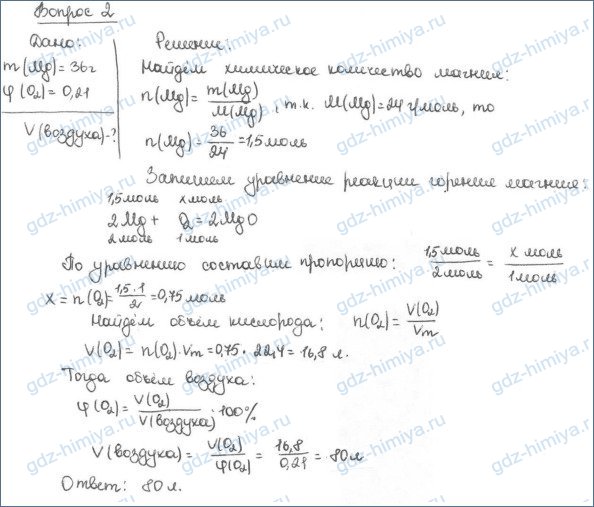 Вопрос 2
Дано:
m(Mg)=36г
φ(O₂)=0,21
V(воздуха)-?
Решение:
Найдём химическое количество магния:
n(Mg)= m(Mg)/M(Mg), т.к. M(Mg)=24 г/моль, то
n(Mg)= 36/24 =1,5моль
Запишем уравнение реакции горения магния:
1,5моль x моль
2Mg + O₂ = 2MgO
2моль 1моль
По уравнению составим пропорцию: 1,5моль/2моль = x моль/1моль
x = n(O₂)= 1,5·1/2 =0,75моль
Найдём объём кислорода: n(O₂)= V(O₂)/Vm
V(O₂) = n(O₂)·Vm=0,75·22,4=16,8 л.
Тогда объём воздуха:
φ(O₂)= V(O₂)/V(воздуха) ·100%
V(воздуха)= V(O₂)/φ(O₂) = 16,8/0,21 = 80л
Ответ: 80л.
gdz-himiya.ru